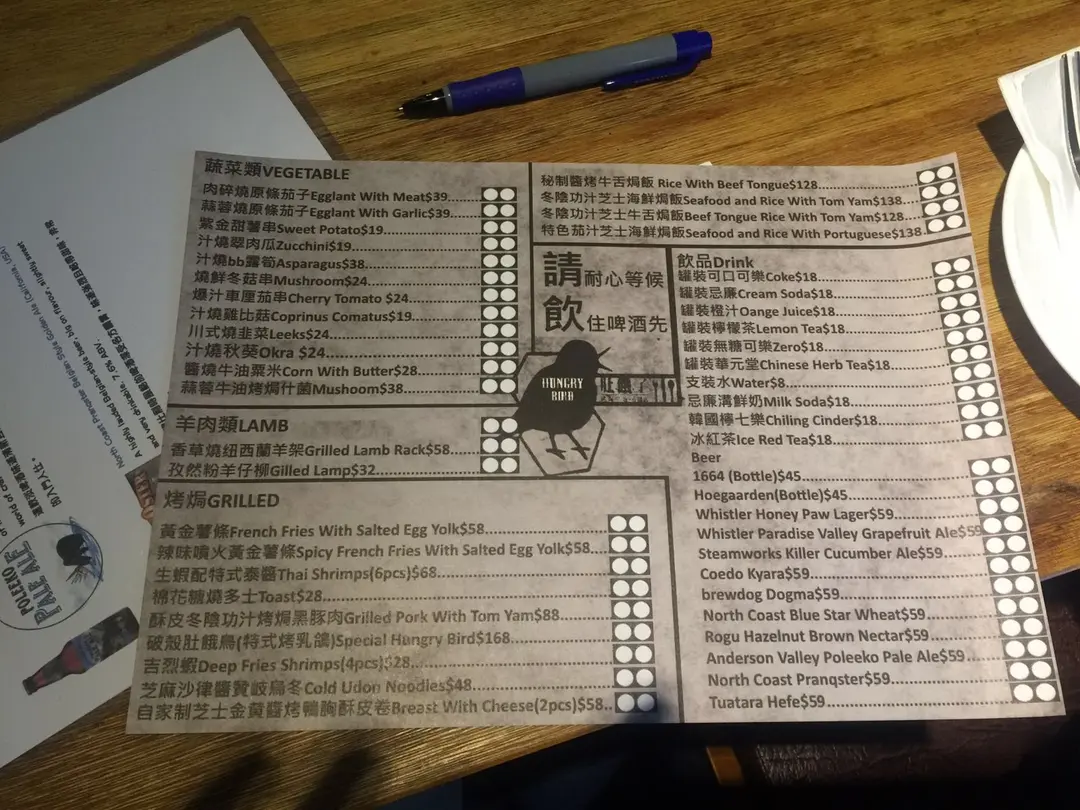 蔬菜類VEGETABLE
肉碎燒原條茄子Egglant With Meat$39
蒜蓉燒原條茄子Egglant With Garlic$39
紫金甜薯串Sweet Potato$19
汁燒翠肉瓜Zucchini$19
汁燒bb露筍Asparagus$38
燒鮮冬菇串Mushroom$24
爆汁車厘茄串Cherry Tomato $24
汁燒雞比菇Coprinus Comatus$19
川式燒韭菜Leeks$24
汁燒秋葵Okra $24
醬燒牛油粟米Corn With Butter$28
蒜蓉牛油烤焗什菌Mushoom$38
羊肉類LAMB
香草燒纽西蘭羊架Grilled Lamb Rack$58
孜然粉羊仔柳Gilled Lamp$32
烤焗GRILLED
黃金薯條French Fries With Salted Egg Yolk$58
辣味噴火黃金薯條Spicy French Fries With Salted Egg Yolk$58
生蝦配特式泰醬Thai Shrimps(6pcs)$68
棉花糖燒多士Toast$28
酥皮冬陰功汁烤焗黑豚肉Grilled Pork With Tom Yam$88
破殼肚餓鳥(特式烤乳鴿)Special Hungry Bird$168
吉烈蝦Deep Fries Shrimps(4pcs)$28
芝麻沙律醬贊岐烏冬Cold Udon Noodles$48
自家制芝士金黃醬烤鴨胸酥皮卷Breast With Cheese(2pcs)$58
秘制醬烤牛舌焗飯 Rice With Beef Tongue$128
冬陰功汁芝士海鮮焗飯Seafood and Rice With Tom Yam$138
冬陰功汁芝士牛舌焗飯Beef Tongue Rice With Tom Yam$128
特色茄汁芝士海鮮焗飯Seafood and Rice With Portuguese$138
請耐心等候
飲住啤酒先
HUNGRY
BIRD
肚餓了
飲品Drink
罐裝可口可樂Coke$18
罐裝忌廉Cream Soda$18
罐裝橙汁Oange Juice$18
罐裝檸檬茶Lemon Tea$18
罐裝無糖可樂Zero$18
罐裝華元堂Chinese Herb Tea$18
支裝水Water$8
忌廉溝鮮奶Milk Soda$18
韓國檸七樂Chiling Cinder$18
冰紅茶Ice Red Tea$18
Beer
1664 (Bottle)$45
Hoegaarden(Bottle)$45
Whistler Honey Paw Lager$59
Whistler Paradise Valley Grapefruit Ale$59
Steamworks Killer Cucumber Ale$59
Coedo Kyara$59
brewdog Dogma$59
North Coast Blue Star Wheat$59
Rogu Hazelnut Brown Nectar$59
Anderson Valley Poleeko Pale Ale$59
North Coast Pranqster$59
Tuatara Hefe$59
North Coast Pranqster Belgian Style Golden Ale (California, USA)
A highly lauded Belgian-style beer, big on flavor, slightly sweet
and very drinkable. 7.6% ABV.
的入門人仕"
POLEEKO
PALE ALE